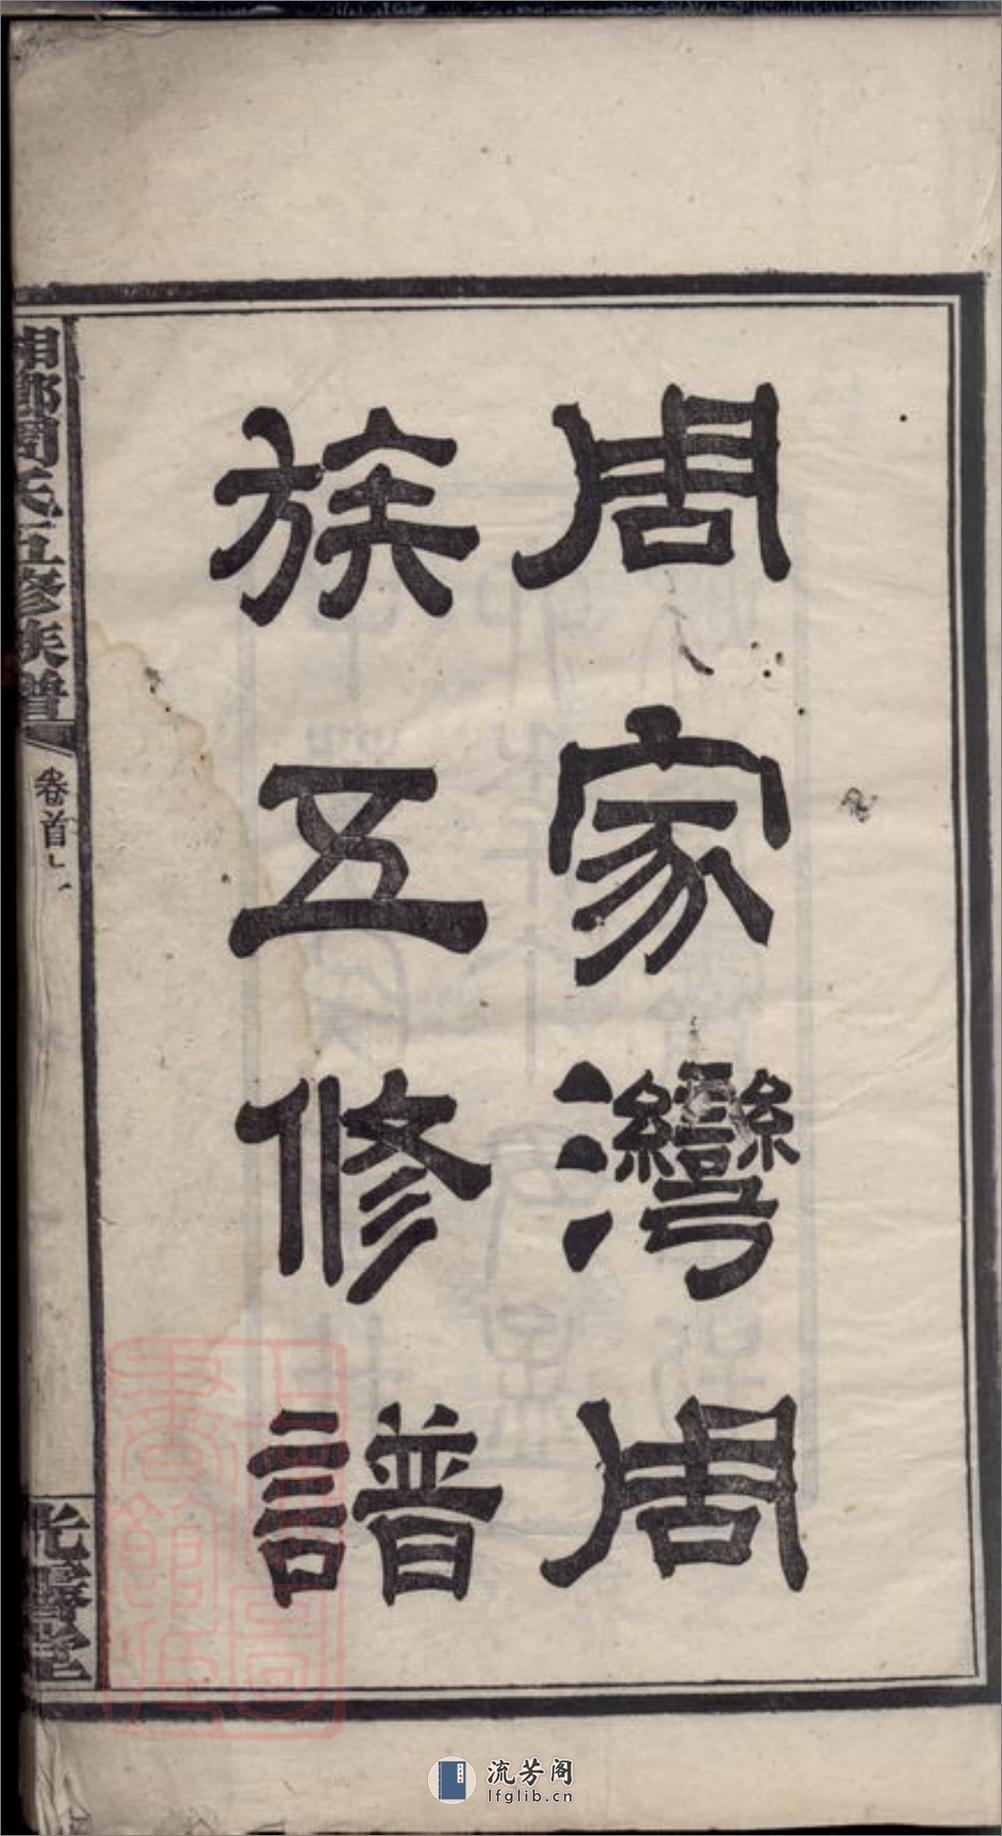 周家灣周
族五修譜
湘鄉周氏五修族譜
卷首
光霽堂
流芳阁
lfglib.cn